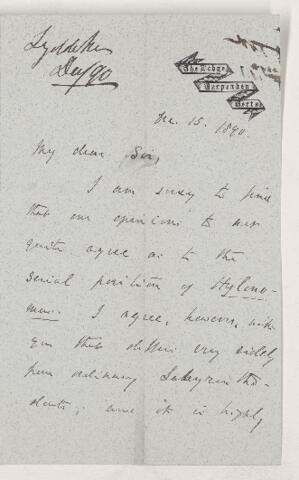 Lydekker
Dec 90
The Lodge
Harpenden
Herts
Dec. 15. 1890.
My dear Sir,
I am sorry to find
that our opinions do not
quite agree as to the
serial position of Hylono-
mus. I agree, however, with
you that differ very widely
from ordinary Labyrintho-
donts; and it is highly